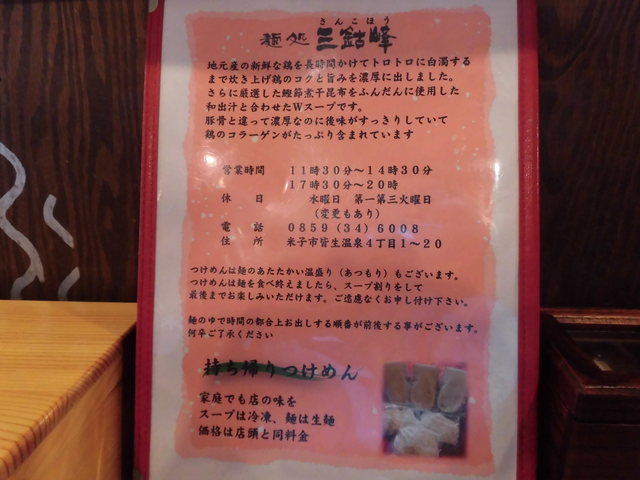 さんこほう
麺処 三鈷峰
地元産の新鮮な鶏を長時間かけてトロトロに白濁する
まで炊き上げ鶏のコクと旨みを濃厚に出しました。
さらに厳選した鰹節煮干昆布をふんだんに使用した
和出汁と合わせたWスープです。
豚骨と違って濃厚なのに後味がすっきりしていて
鶏のコラーゲンがたっぷり含まれています
営業時間 11時30分～14時30分
17時30分～20時
休日 水曜日 第一第三火曜日
（変更もあり）
電話 0859（34）6008
住所 米子市皆生温泉4丁目1～20
つけめんは麺のあたたかい温盛り（あつもり）もございます。
つけめんは麺を食べ終えましたら、スープ割りをして
最後までお楽しみいただけます。ご遠慮なくお申し付け下さい。
麺のゆで時間の都合上お出しする順番が前後する事がございます。
何卒ご了承ください
持ち帰りつけめん
家庭でも店の味を
スープは冷凍、麺は生麺
価格は店頭と同料金